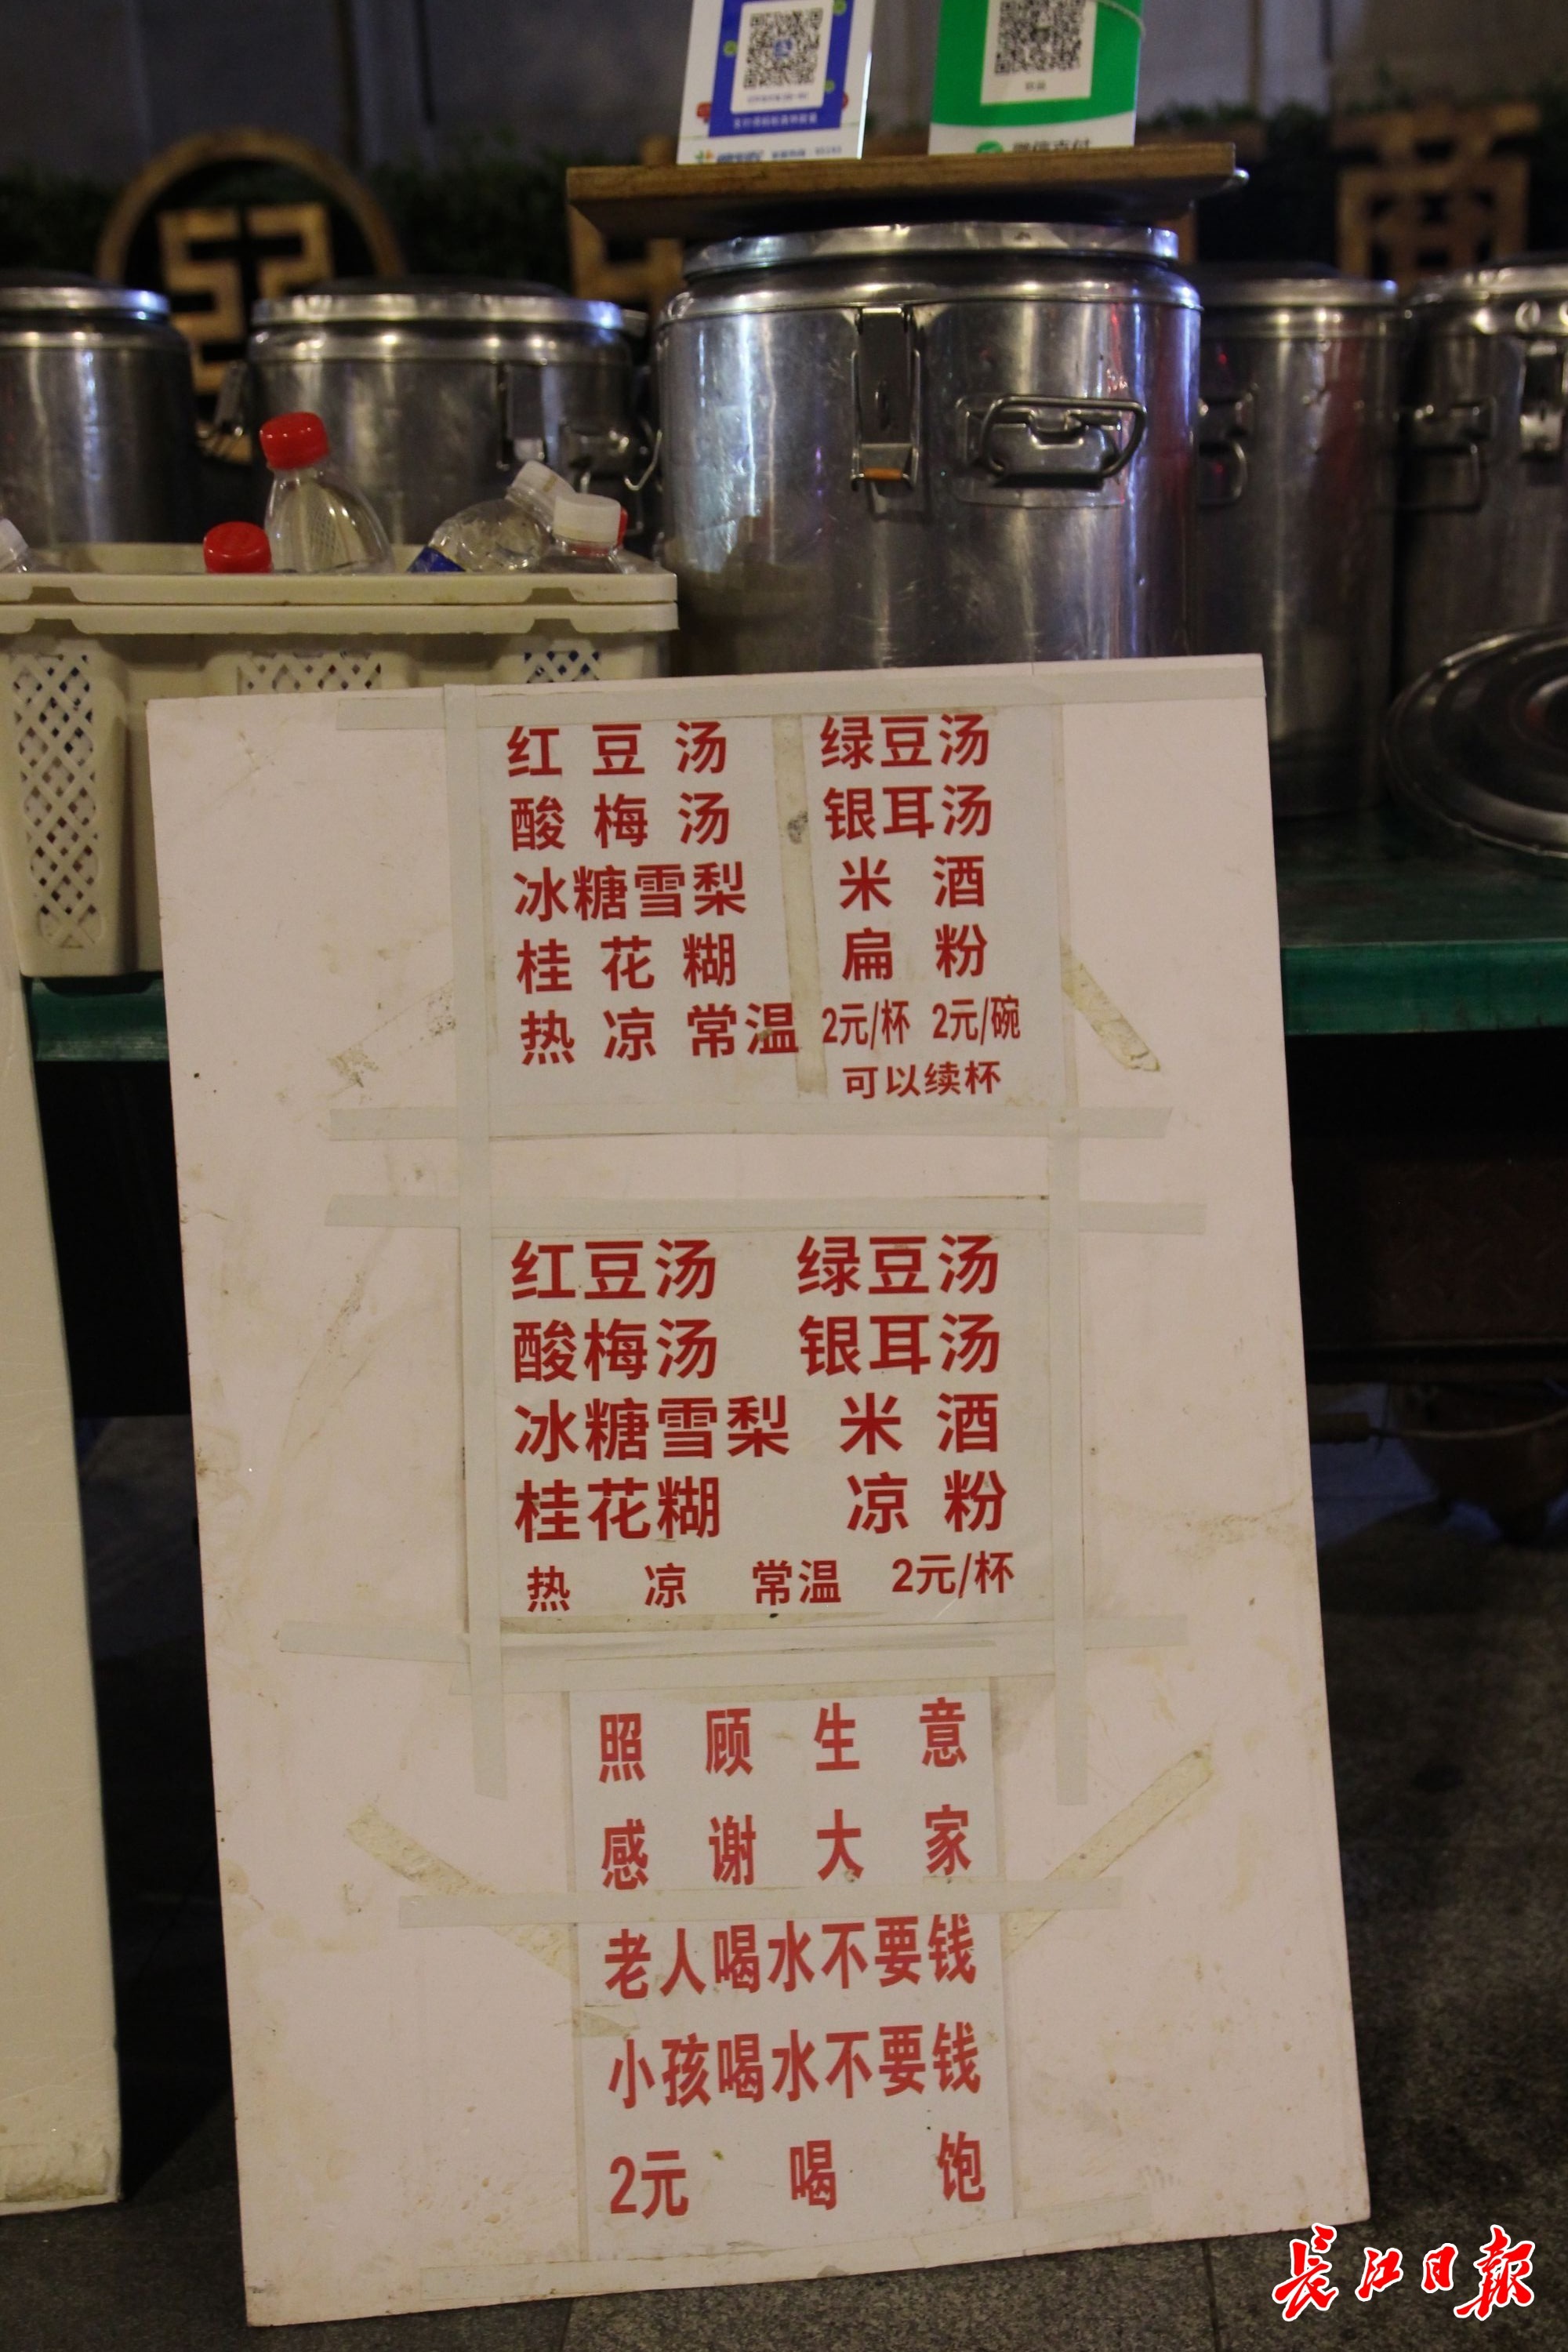 微信支付
红豆汤 绿豆汤
酸梅汤 银耳汤
冰糖雪梨 米酒
桂花糊 扁粉
热 凉 常温 2元/杯 2元/碗
可以续杯
红豆汤 绿豆汤
酸梅汤 银耳汤
冰糖雪梨 米酒
桂花糊 凉粉
热 凉 常温 2元/杯
照顾生意
感谢大家
老人喝水不要钱
小孩喝水不要钱
2元喝饱
長江日報